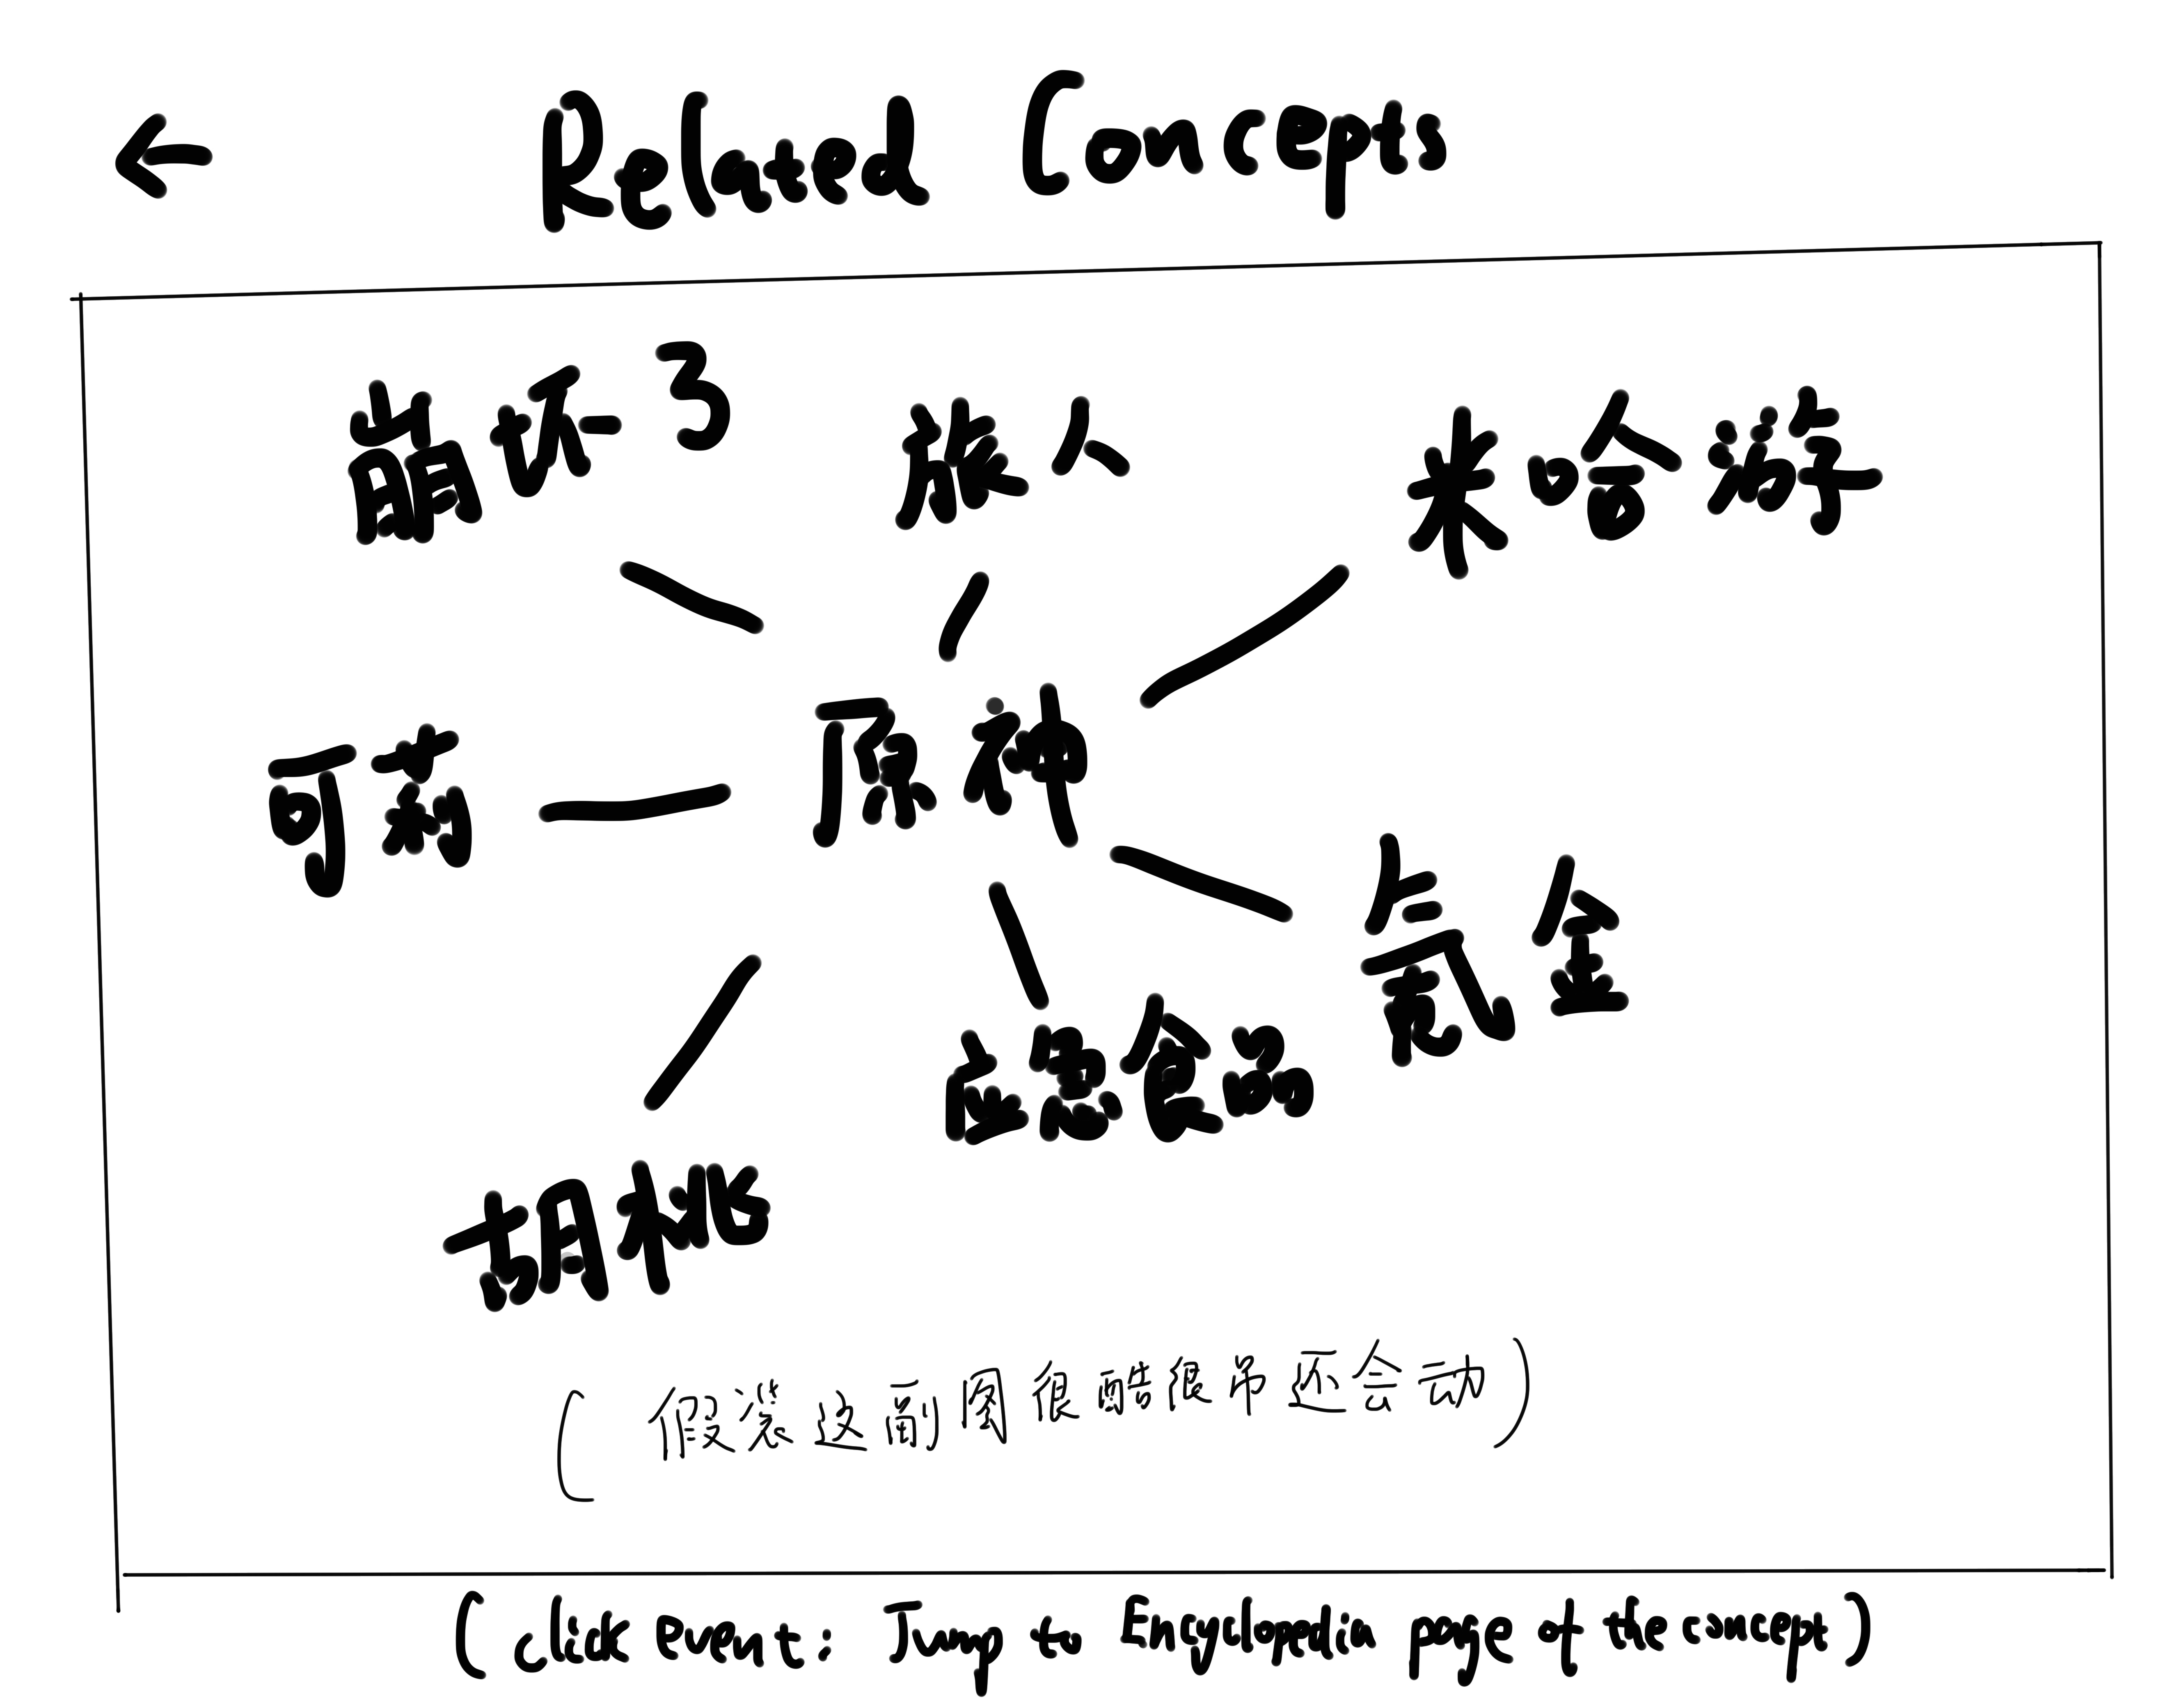 ← Related Concepts
崩坏3
旅人
米哈游
可莉
原神
氪金
应急食品
胡桃
(假装这副图很酷很吊还会动)
(click event: Jump to Encyclopedia page of the concept)